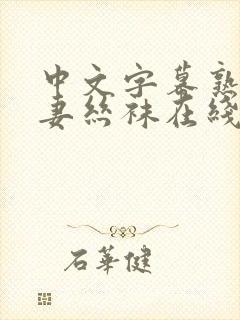 中文字幕熟
妻丝袜在线
石華健